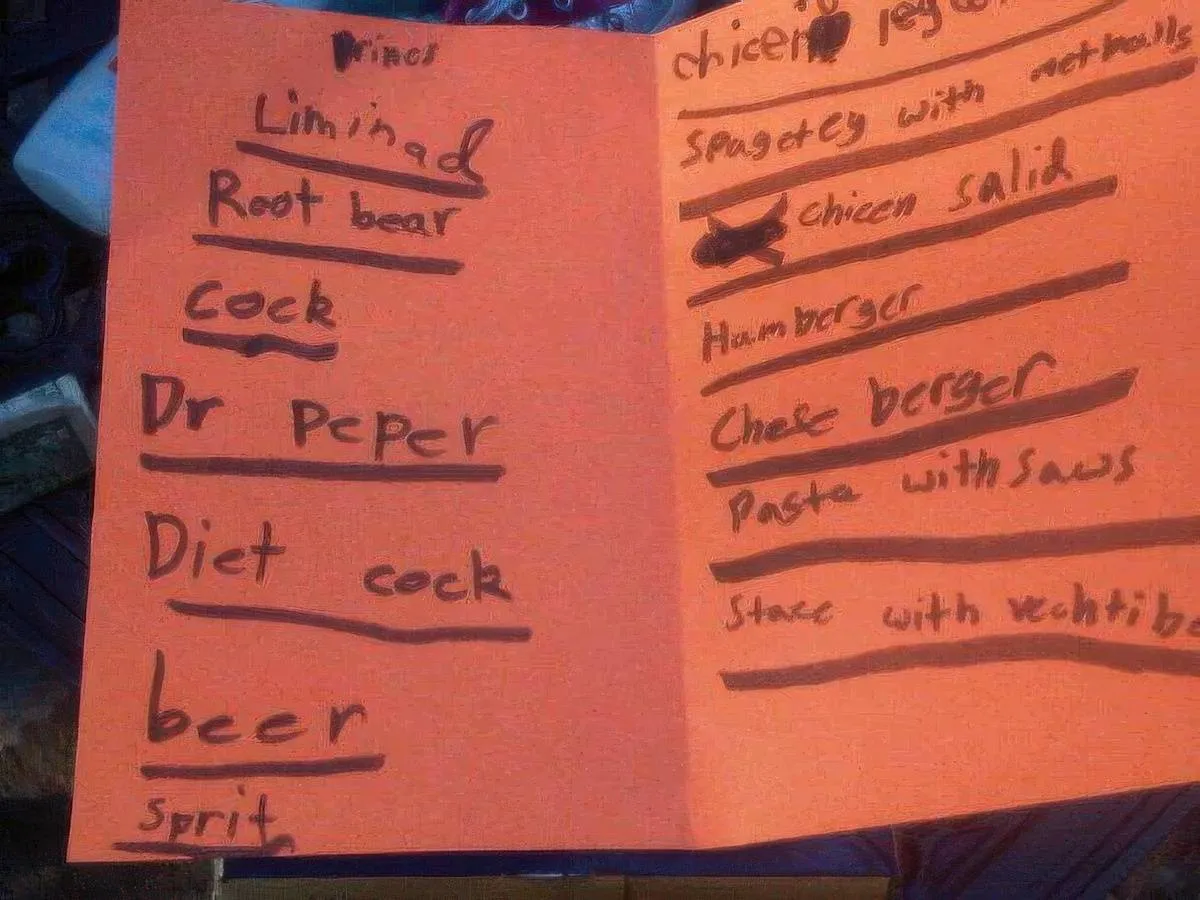 Liminad
Root bear
cock
Dr peper
Diet cock
beer
sprit
chicen
spagetey with metballs
chicen salid
Hamberger
Chese berger
Pasta with saws
with